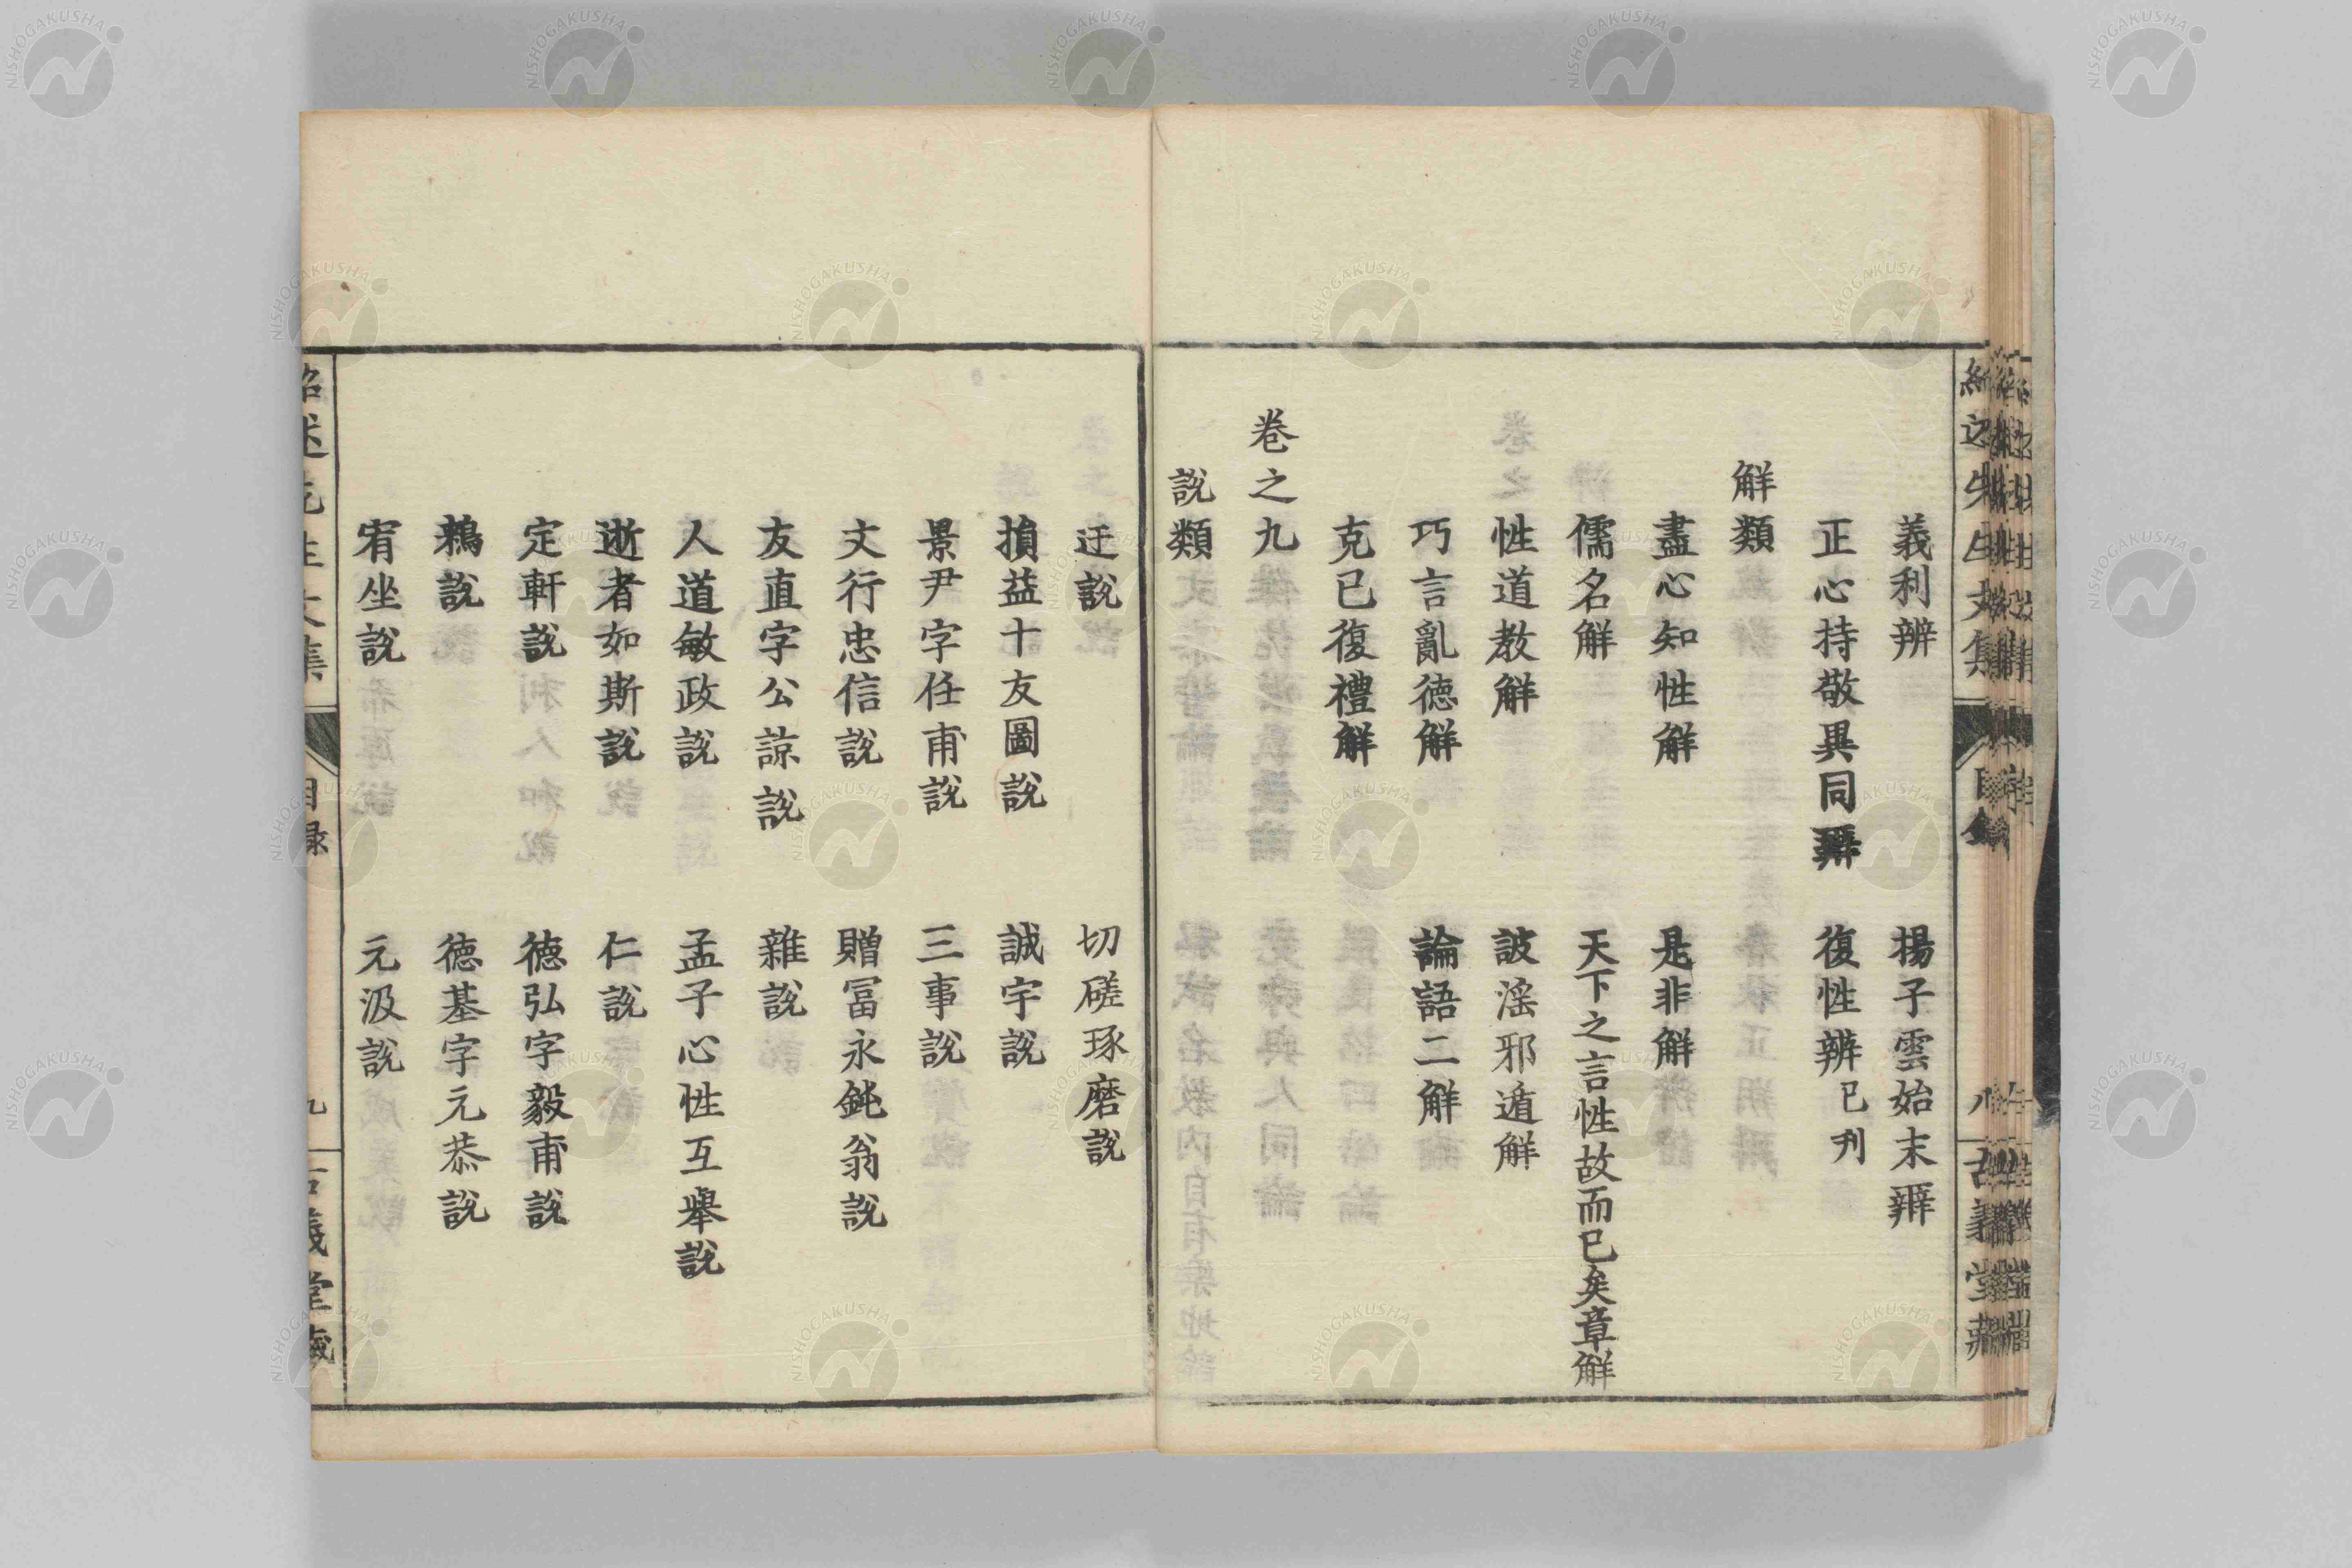 義利辨 揚子雲始末辨
正心持敬異同辨 復性辨 已刋
解類
盡心知性解 是非解
儒名解 天下之言性故而已矣章解
性道教解 詖滛邪遁解
巧言亂德解 論語二解
克已復禮解
卷之九
說類
迂說 切磋琢磨說
損益十友圖說 誠字說
景尹字任甫說 三事說
文行忠信說 贈冨永鈍翁說
友直字公諒說 雜說
人道敏政說 孟子心性互舉說
逝者如斯說 仁說
定軒說 德弘字毅甫說
鵜說 德基字元恭說
宥坐說 元汲說
目録
九
NISHOGAKUSHA